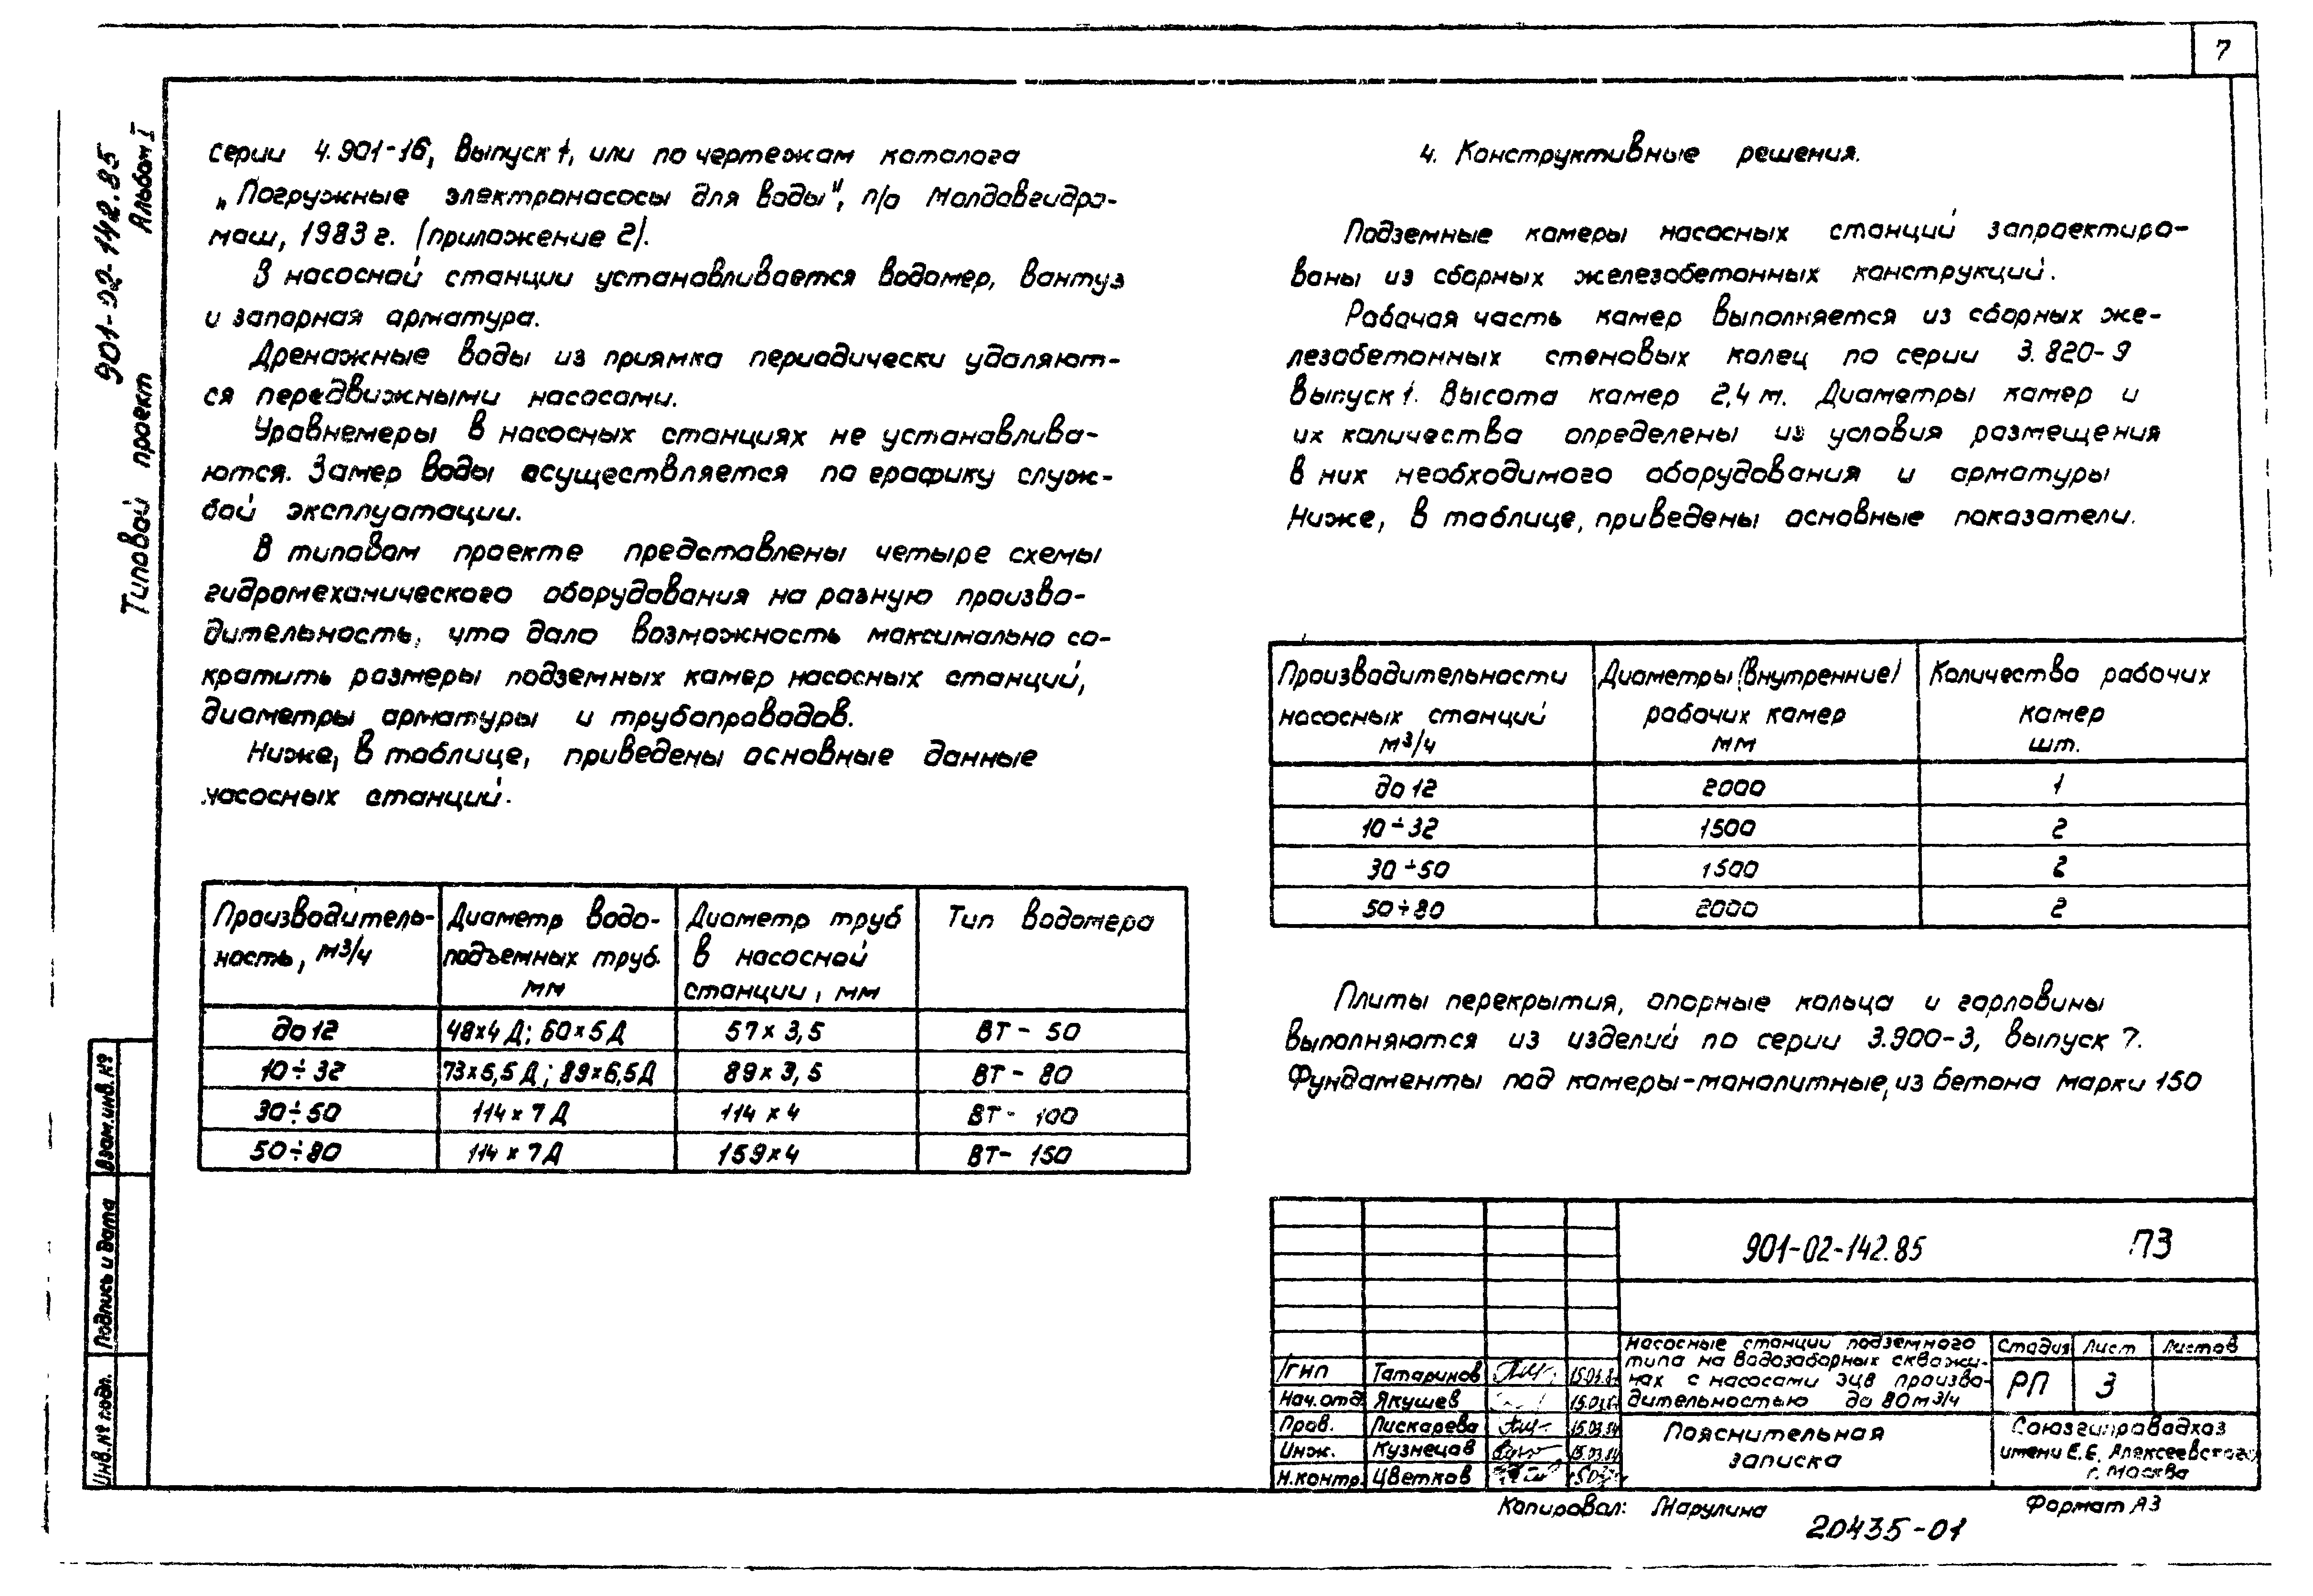 7
901-02-142.85
Альбом I
Типовой проект
серии 4.901-16, Выпуск 1, или по чертежам каталога
„Погружные электронасосы для воды", п/о Молдавгидро-
маш, 1983 г. (приложение 2).
В насосной станции устанавливается водомер, вантуз
и запорная арматура.
Дренажные воды из приямка периодически удаляют-
ся передвижными насосами.
Уравнемеры в насосных станциях не устанавлива-
ются. Замер воды осуществляется по графику служ-
бой эксплуатации.
В типовом проекте представлены четыре схемы
гидромеханического оборудования на разную произво-
дительность, что дало возможность максимально со-
кратить размеры подземных камер насосных станций,
диаметры арматуры и трубопроводов.
Ниже, в таблице, приведены основные данные
насосных станций.
Производитель- Диаметр водо- Диаметр труб Тип водомера
ность, м3/ч подъемных труб. в насосной
мм станции, мм
до 12 48×4 Д; 60×5 Д 57×3,5 ВТ-50
10÷32 73×5,5 Д; 89×6,5 Д 89×3,5 ВТ-80
30÷50 114×7 Д 114×4 ВТ-100
50÷80 114×7 Д 159×4 ВТ-150
4. Конструктивные решения.
Подземные камеры насосных станций запроектиро-
ваны из сборных железобетонных конструкций.
Рабочая часть камер выполняется из сборных же-
лезобетонных стеновых колец по серии 3.820-9
Выпуск 1. Высота камер 2,4 м. Диаметры камер и
их количества определены из условия размещения
в них необходимого оборудования и арматуры
Ниже, в таблице, приведены основные показатели.
Производительности Диаметры (внутренние) Количество рабочих
насосных станций рабочих камер камер
м3/ч мм шт.
до 12 2000 1
10÷32 1500 2
30÷50 1500 2
50÷80 2000 2
Плиты перекрытия, опорные кольца и горловины
выполняются из изделий по серии 3.900-3, выпуск 7.
Фундаменты под камеры-монолитные, из бетона марки 150
901-02-142.85 ПЗ
Насосные станции подземного
типа на водозаборных скважи-
нах с насосами ЭЦВ произво-
дительностью до 80 м3/ч
Стадия Лист Листов
РП 3
Пояснительная
записка
Союзгипроводхоз
имени Е.Е. Алексеевского
г. Москва
ГИП Татаринов
Нач.отд. Якушев
Пров. Пискарева 15.03.84
Инж. Кузнецов 15.03.84
Н.контр. Цветков
Взам.инв.№
Подпись и дата
Инв.№ подл.
Копировал: Марулина Формат А3
20435-01